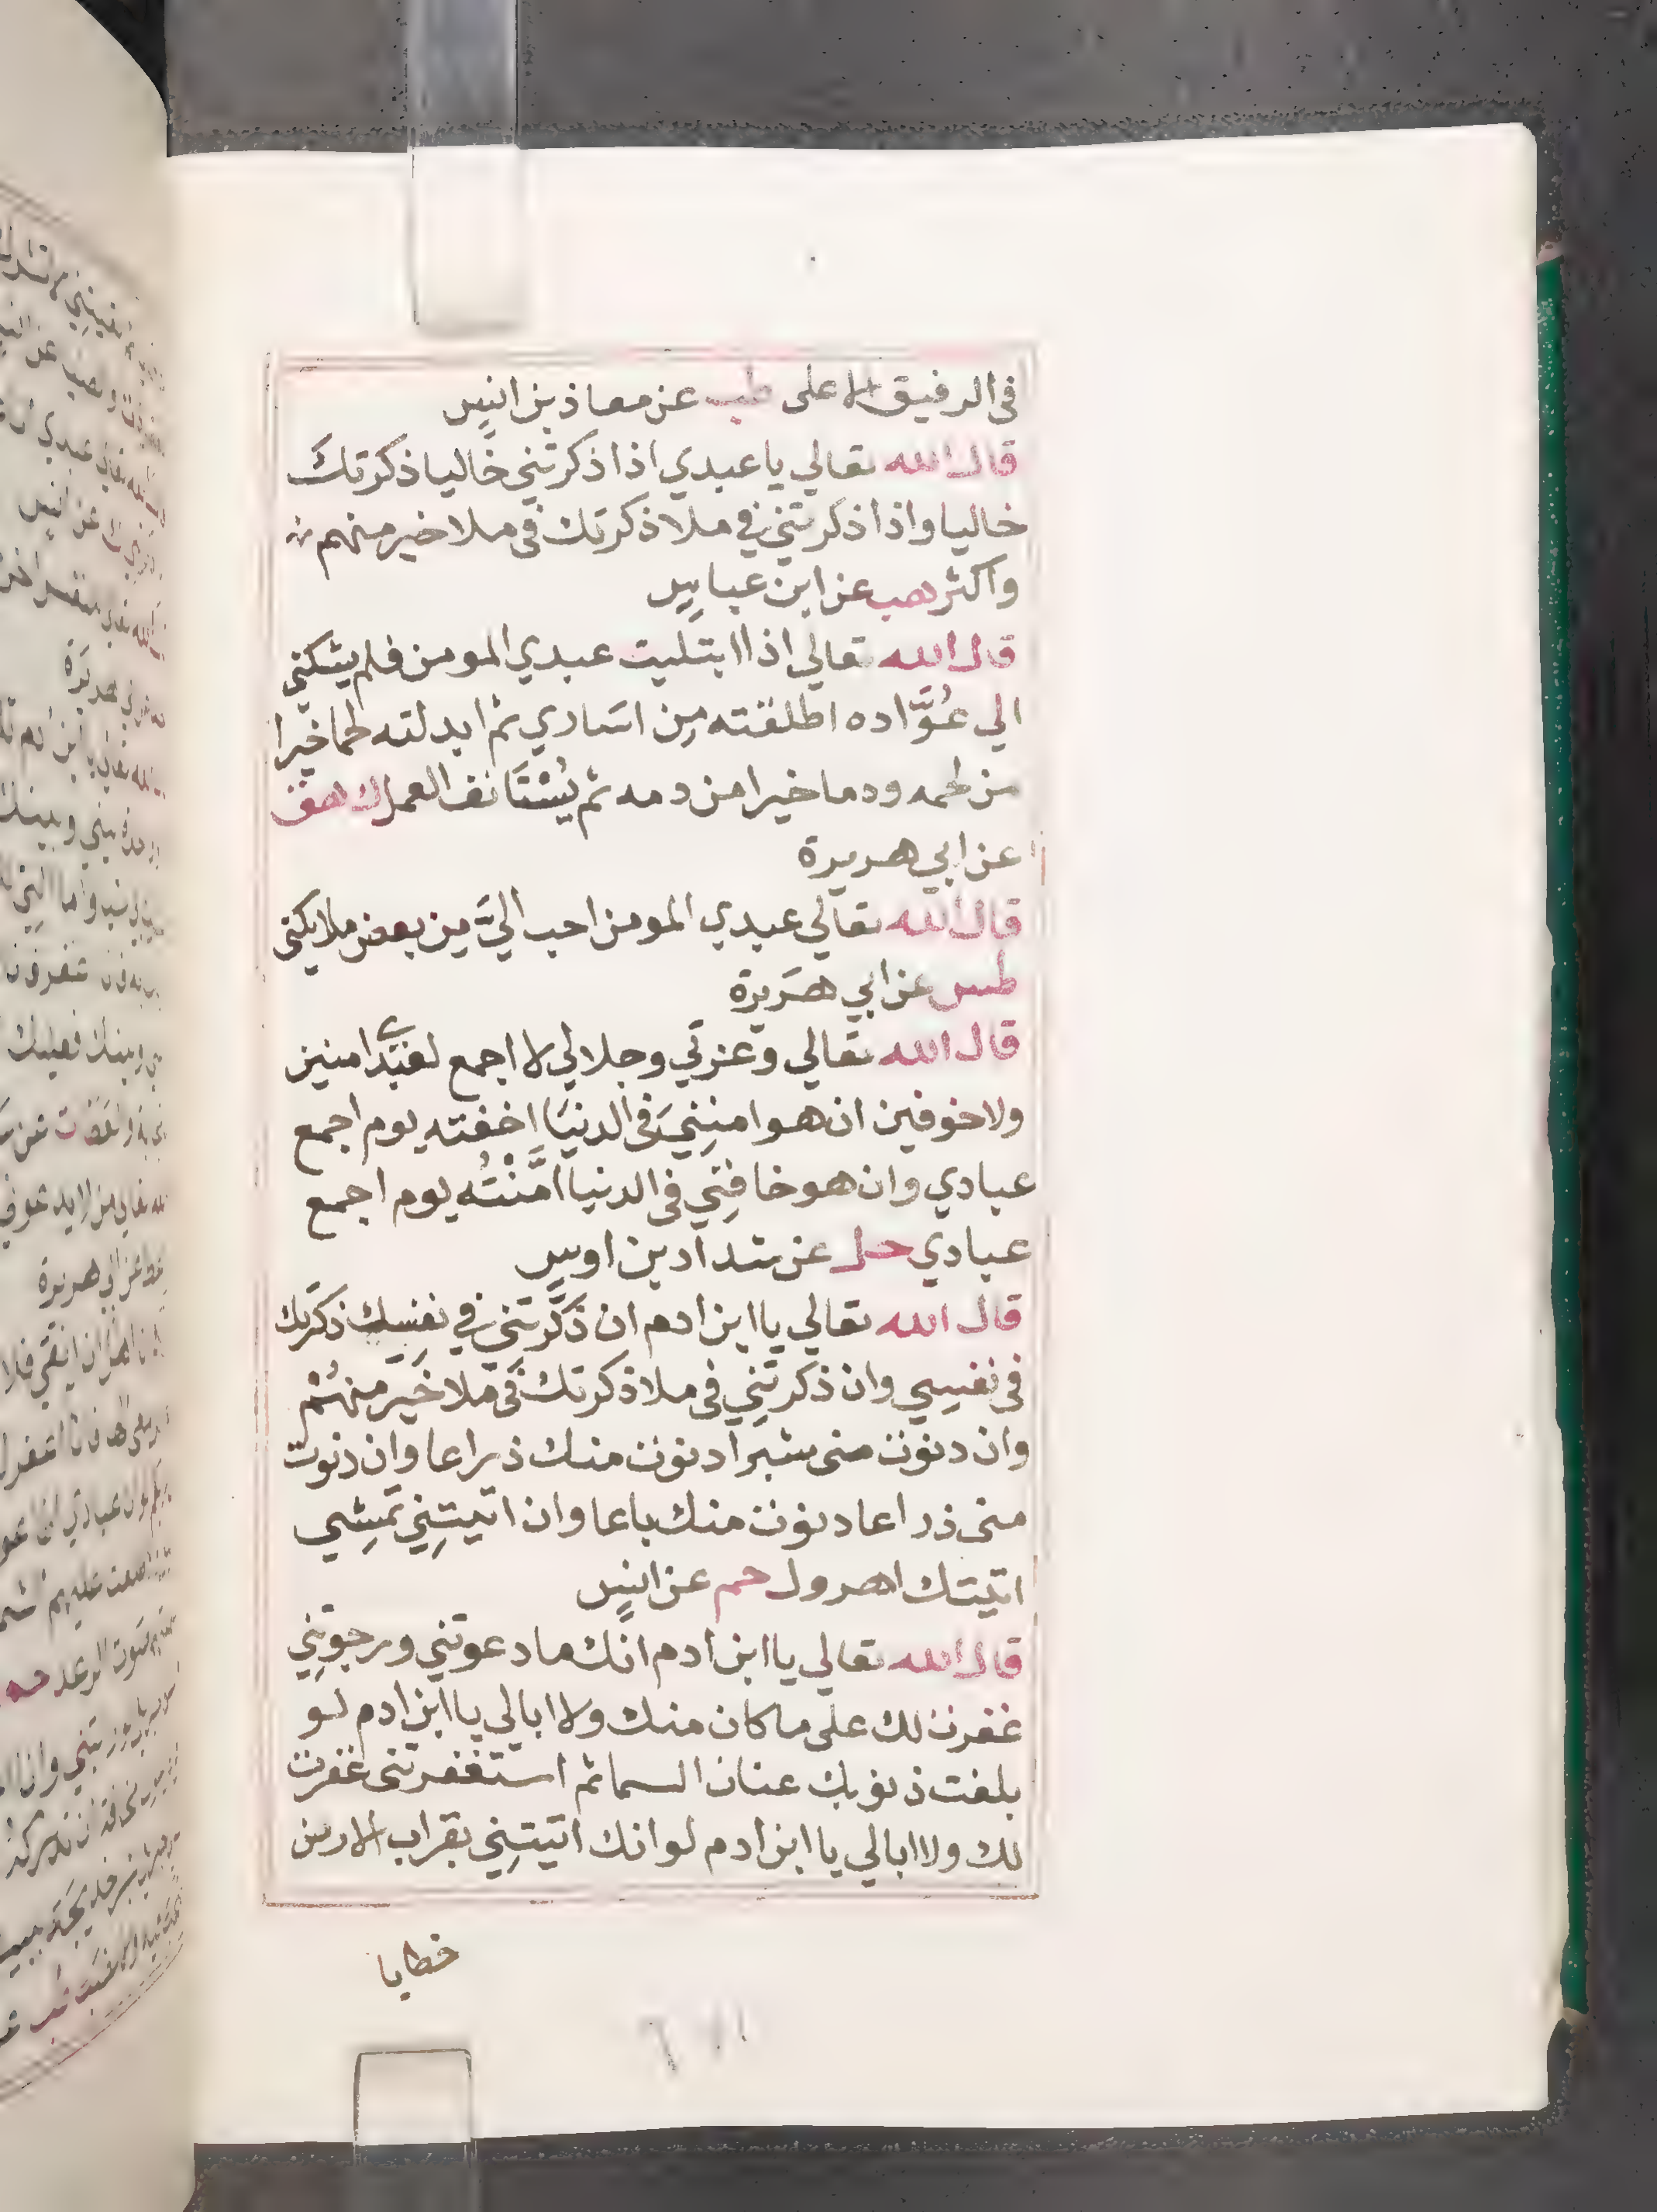 في الرفيق الاعلى طب عن معاذ بن انس
قال الله تعالي يا عبدي اذا ذكرتني خاليا ذكرتك
خاليا واذا ذكرتني في ملا ذكرتك في ملا خير منهم
واكثر هب عن ابن عباس
قال الله تعالي اذا ابتليت عبدي المومن فلم يشكني
الي عُوَّاده اطلقته مِن اسَاري ثم ابدلته لحما خيرا
من لحمه ودما خيرا من دمه ثم يُسْتَانف العمل ك هق
عن ابي هريرة
قال الله تعالي عبدي المومن احب اليَّ مِن بعض ملايكتي
طس عن ابي هرَيرة
قال الله تعالي وعزتي وجلالي لا اجمع لعبدي امنين
ولا خوفين ان هو امنِنِي في الدنيَا اخفته يوم اجمع
عبادي وان هو خافنِي في الدنيا امَّنْتُه يوم اجمع
عبادي حل عن شداد بن اوس
قال الله تعالي يا ابن ادم ان ذكرتني في نفسِك ذكرتك
في نفسِي وان ذكرتنِي في ملا ذكرتك في ملا خَير منهُم
وان دنوت مني شبرا دنوت منك ذراعا وان دنوت
مني ذراعا دنوت منك باعا وان اتيتنِي تمشِي
اتيتك اهرول حم عن انس
قال الله تعالي يا ابن ادم انك ما دعوتني ورجوتنِي
غفرت لك على ما كان منك ولا ابالي يا ابن ادم لو
بلغت ذنوبك عنان السما ثم استغفرتني غفرت
لك ولا ابالي يا ابن ادم لو انك اتيتنِي بقراب الارض
خطايا